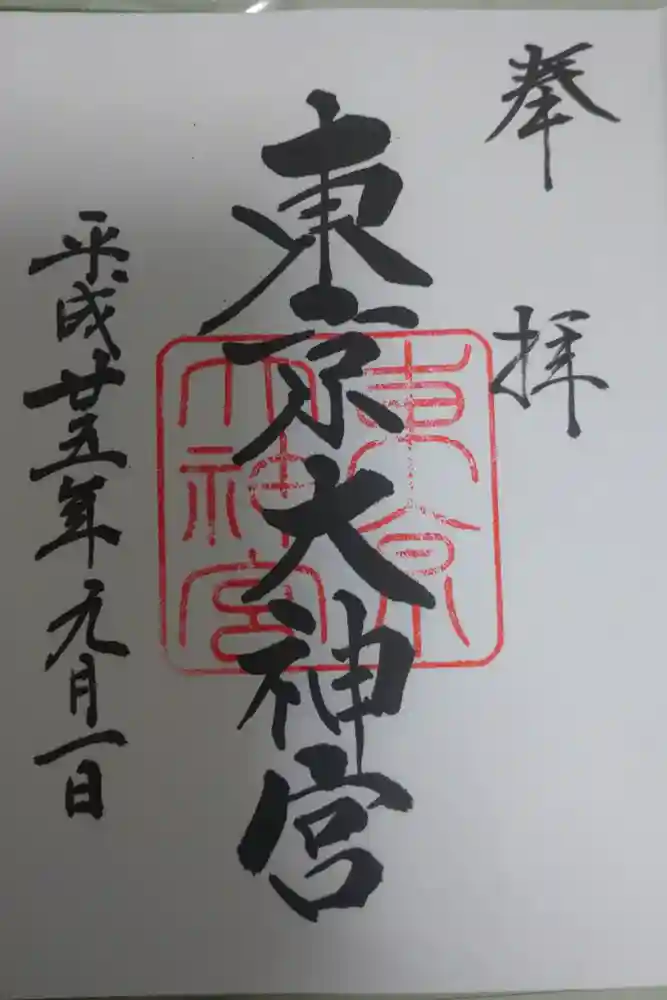 奉拝
東京大神宮
東京
大神宮
平成廿五年元月一日